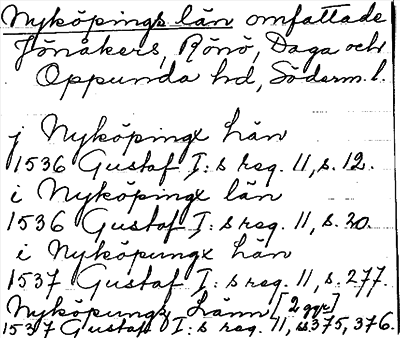 Nyköpings län omfattade
Jönåkers, Rönö, Daga och
Oppunda hd, Söderm. l.
j Nyköpingx hän
1536 Gustaf I:s reg. 11, s. 12.
i Nyköpingx län
1536 Gustaf I:s reg. 11, s. 30.
i Nyköpungx hän
1537 Gustaf I:s reg. 11, s. 277.
Nyköpungx Länn [2 ggr]
1537 Gustaf I:s reg. 11, s. 375, 376.